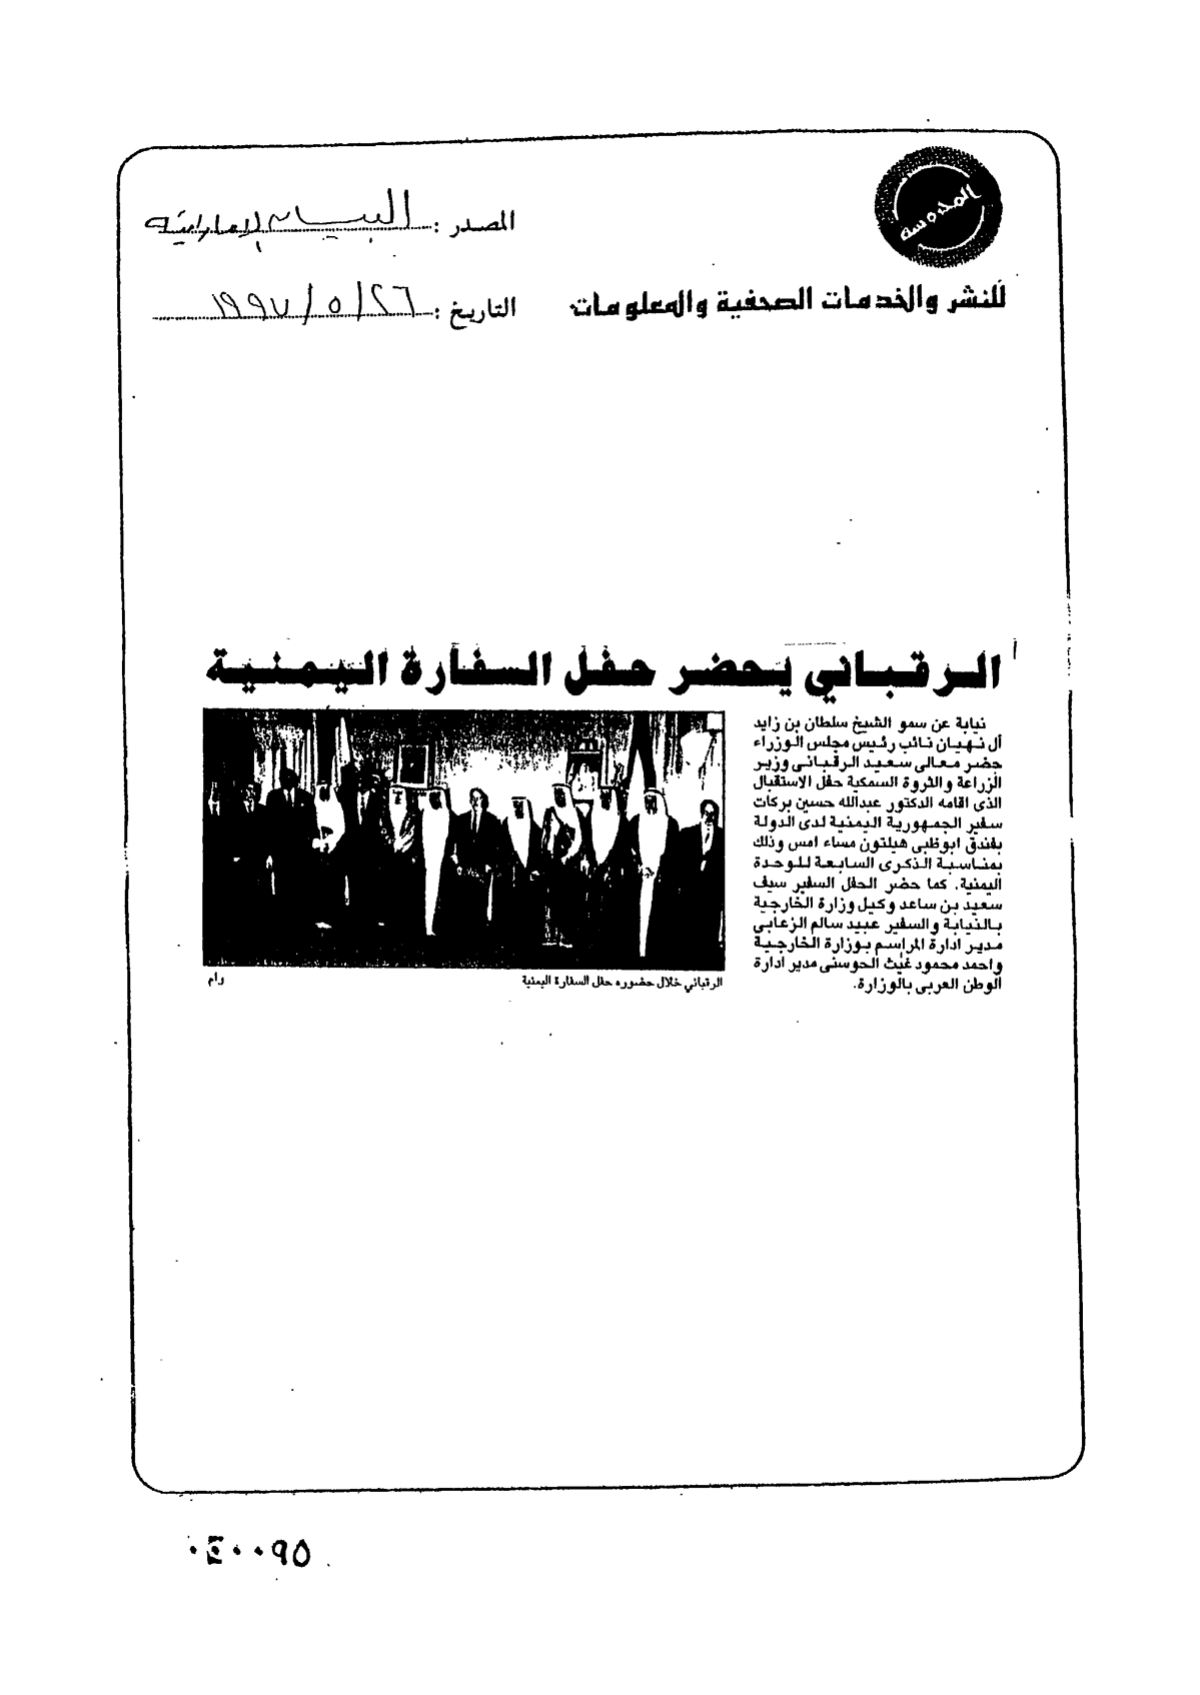 المحروسة
للنشر والخدمات الصحفية والمعلومات
المصدر : البيان الإماراتية
التاريخ : ٢٦ / ٥ / ١٩٩٧
الرقباني يحضر حفل السفارة اليمنية
نيابة عن سمو الشيخ سلطان بن زايد
آل نهيان نائب رئيس مجلس الوزراء
حضر معالى سعيد الرقبانى وزير
الزراعة والثروة السمكية حفل الاستقبال
الذى اقامه الدكتور عبدالله حسين بركات
سفير الجمهورية اليمنية لدى الدولة
بفندق ابوظبى هيلتون مساء امس وذلك
بمناسبة الذكرى السابعة للوحدة
اليمنية. كما حضر الحفل السفير سيف
سعيد بن ساعد وكيل وزارة الخارجية
بالنيابة والسفير عبيد سالم الزعابي
مدير ادارة المراسم بوزارة الخارجية
واحمد محمود غيث الحوسنى مدير ادارة
الوطن العربى بالوزارة.
الرقباني خلال حضوره حفل السفارة اليمنية
وام
٠٤٠٠٩٥